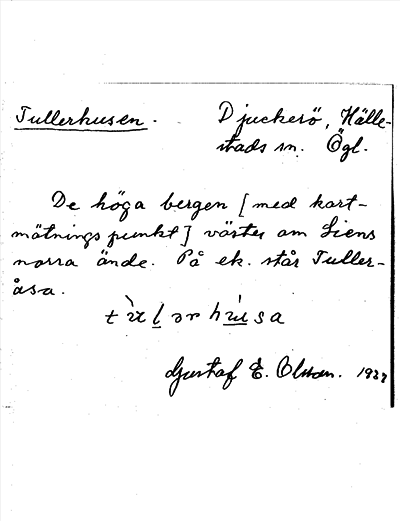 Tullerhusen. Djuckerö, Hälle-
stads sn. Ögl.
De höga bergen [med kart-
mätningspunkt] väster om Liens
norra ände. På ek. står Tuller-
åsa.
Gustaf E. Olsson.